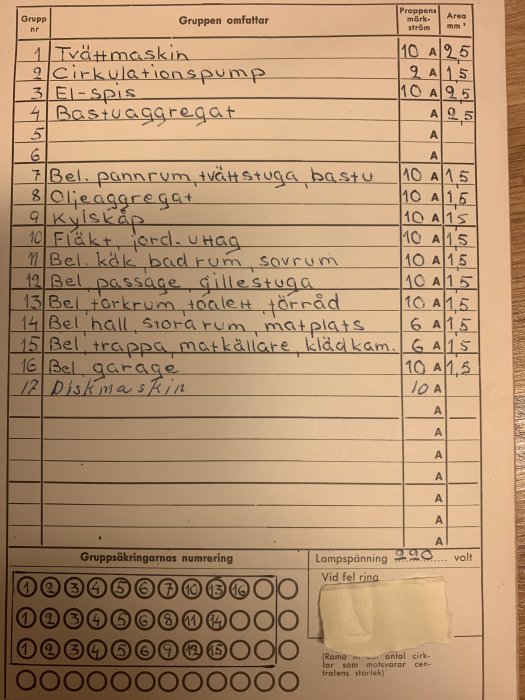 Grupp nr Gruppen omfattar Proppens märkström Area mm²
1 Tvättmaskin 10 A 2,5
2 Cirkulationspump 2 A 1,5
3 El-spis 10 A 2,5
4 Bastuaggregat A 2,5
5 A
6 A
7 Bel. pannrum, tvättstuga, bastu 10 A 1,5
8 Oljeaggregat 10 A 1,5
9 Kylskåp 10 A 1,5
10 Fläkt, jord. uttag 10 A 1,5
11 Bel. kök, badrum, sovrum 10 A 1,5
12 Bel, passage, gillestuga 10 A 1,5
13 Bel torkrum, toalett förråd 10 A 1,5
14 Bel, hall, stora rum, matplats 6 A 1,5
15 Bel, trappa, matkällare, klädkam. 6 A 1,5
16 Bel, garage 10 A 1,5
17 Diskmaskin 10 A
A
A
A
A
A
A
A
Gruppsäkringarnas numrering
Lampspänning 220 volt
Vid fel ring
1 2 3 4 5 6 7 10 13 16
1 2 3 4 5 6 8 11 14
1 2 3 4 5 6 9 12 15
(Rama antal cirk-
lar som motsvarar cen-
tralens storlek)